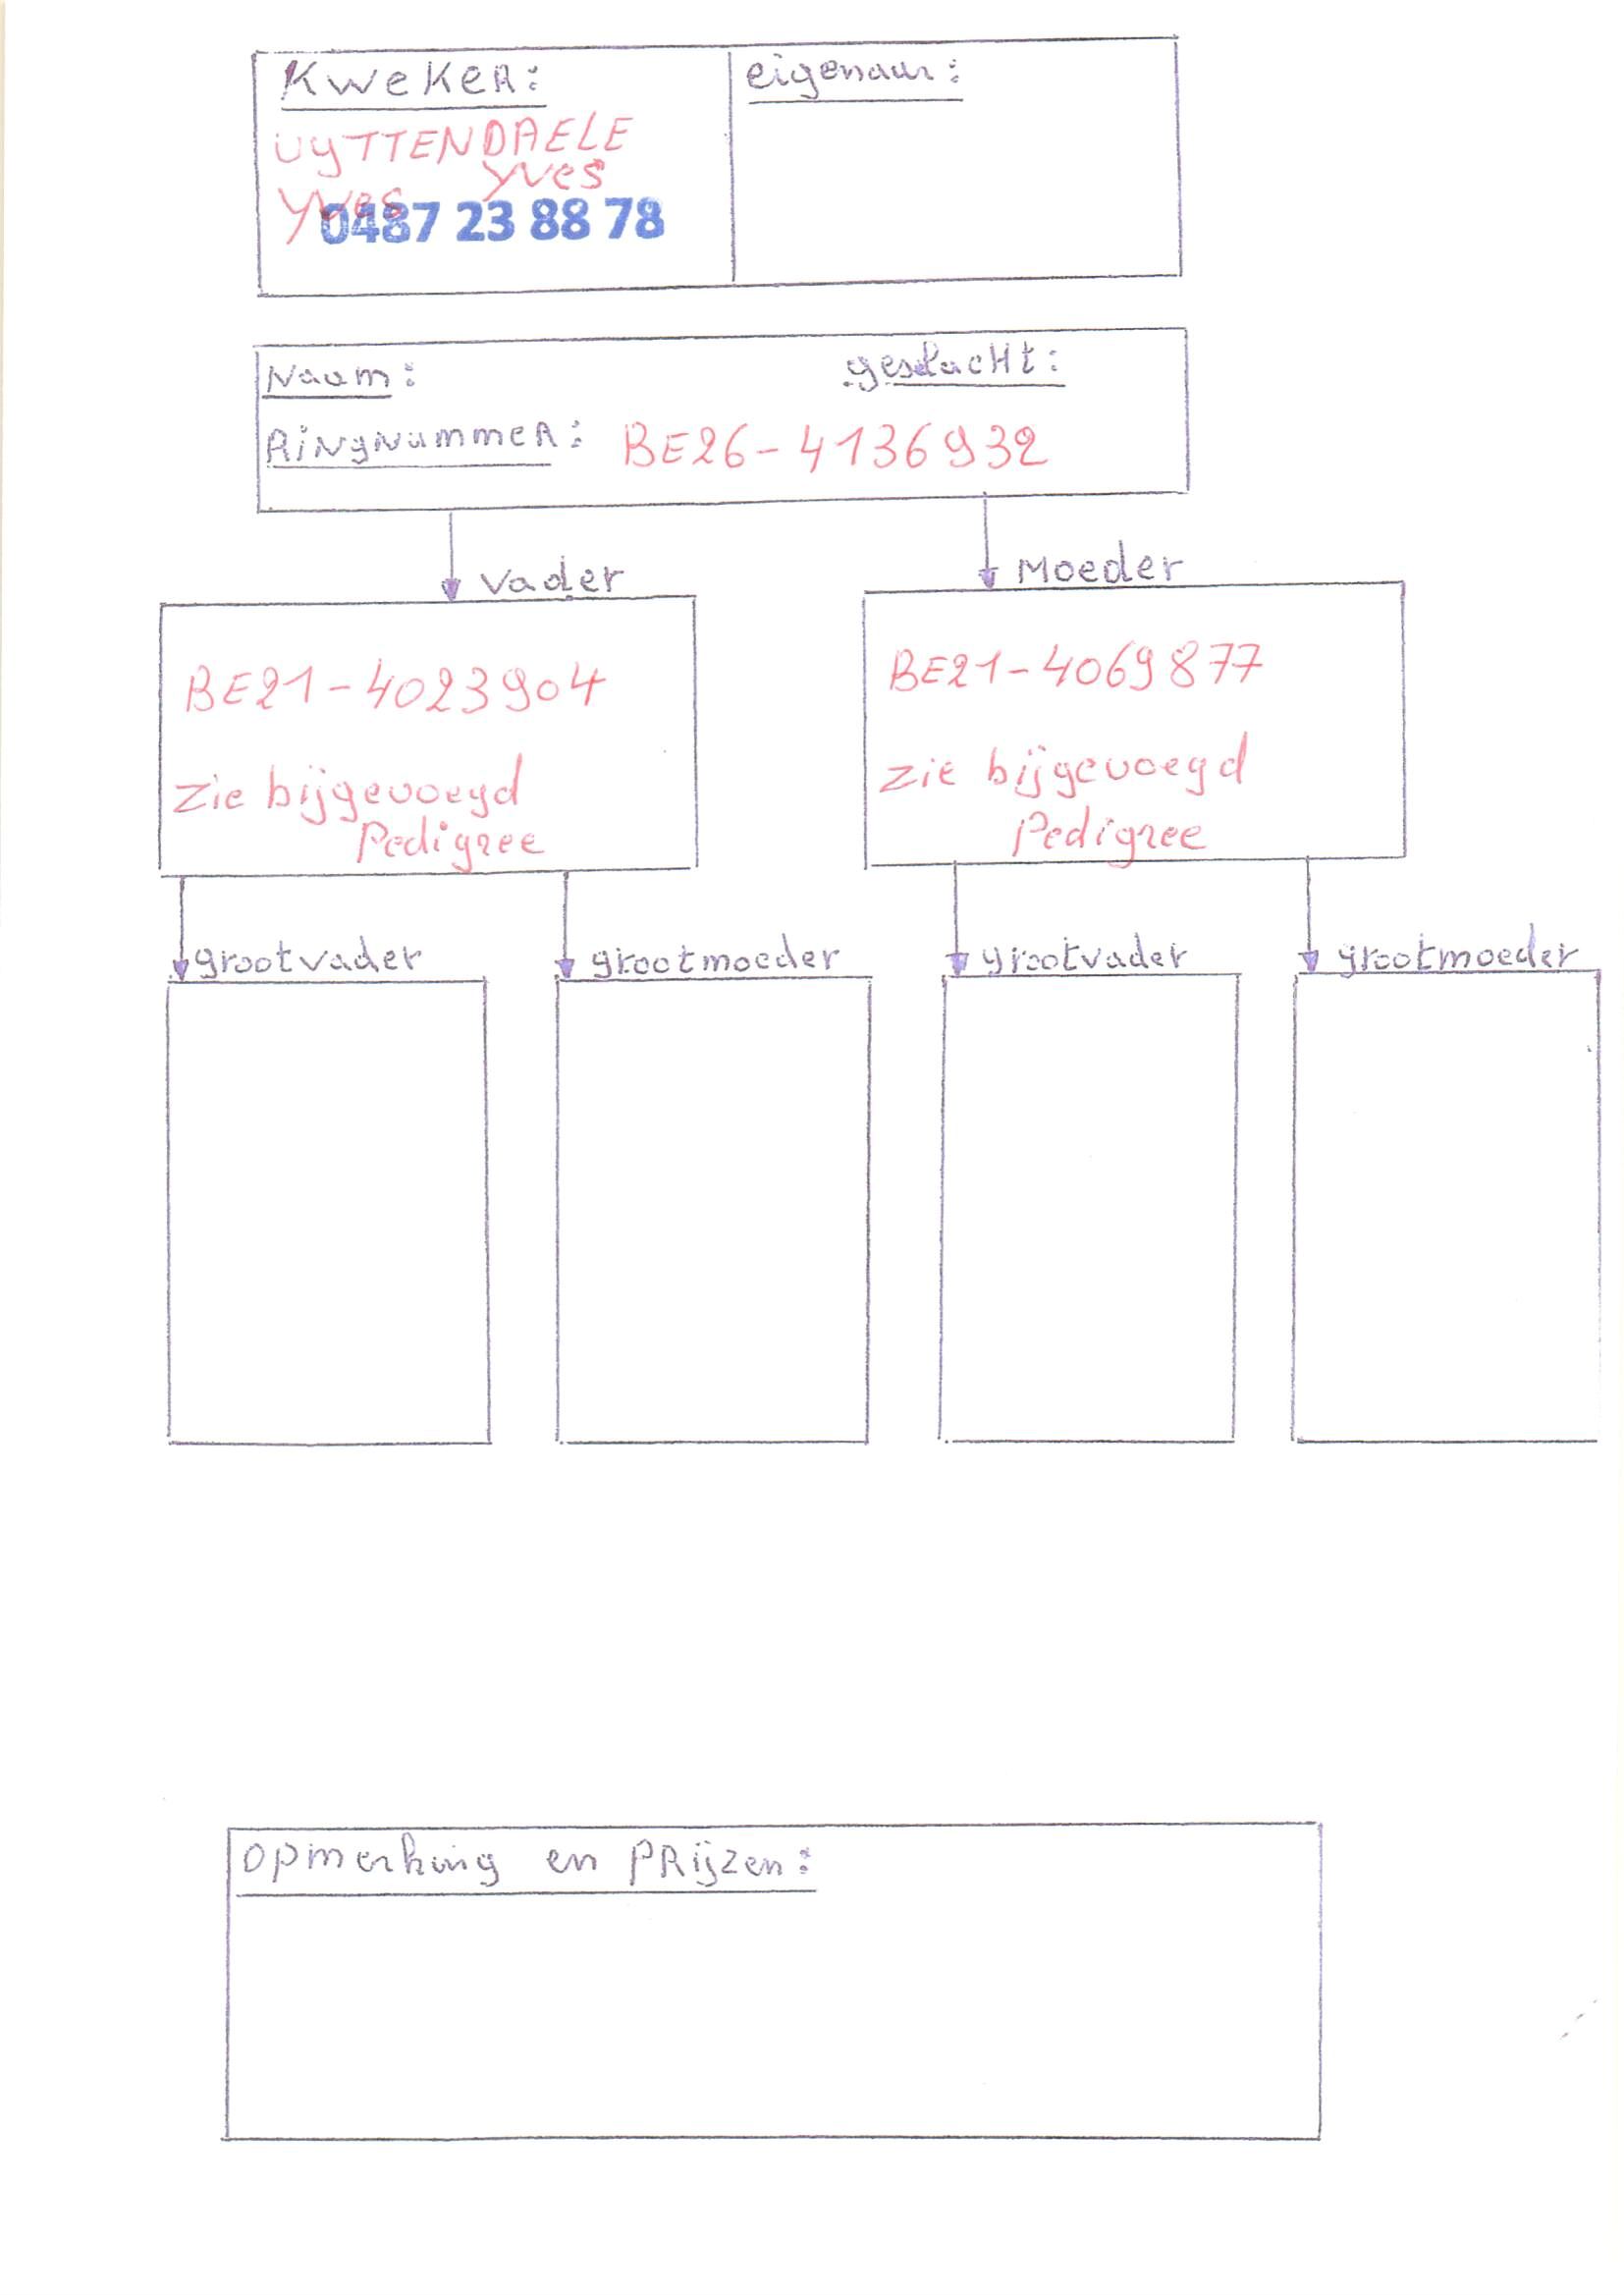 Kweker:
eigenaar:
UYTTENDAELE
Yves
Yves
0487 23 88 78
Naam:
geslacht:
Ringnummer:
BE26-4136932
Vader
Moeder
BE21-4023904
zie bijgevoegd
Pedigree
BE21-4069877
zie bijgevoegd
Pedigree
grootvader
grootmoeder
grootvader
grootmoeder
opmerking en PRijzen: